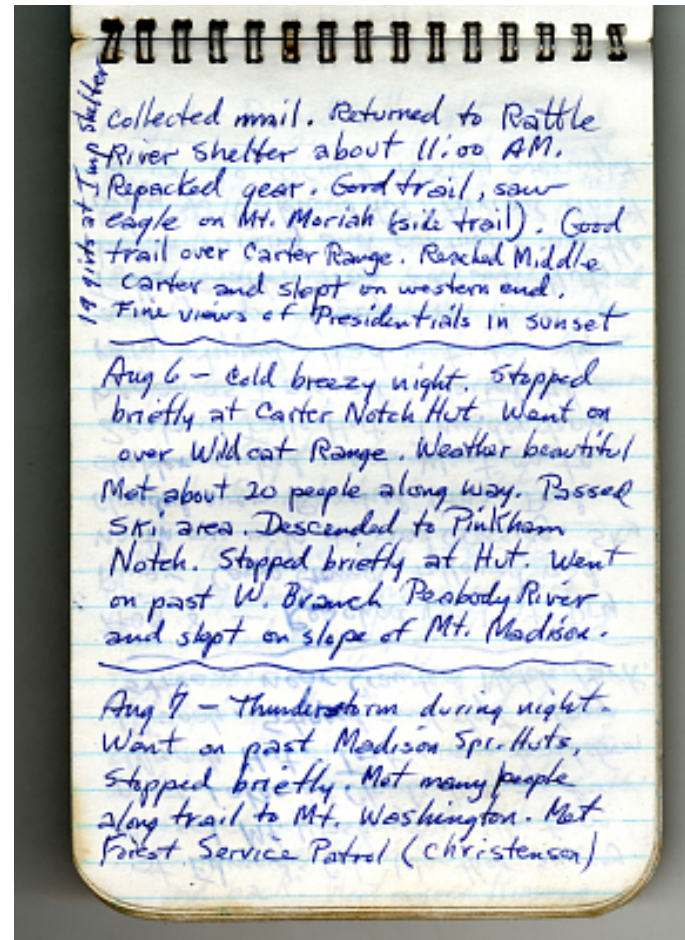 19 girls at Imp shelter
Collected mail. Returned to Rattle
River Shelter about 11:00 AM.
Repacked gear. Good trail, saw
eagle on Mt. Moriah (side trail). Good
trail over Carter Range. Reached Middle
Carter and slept on western end.
Fine views of Presidentials in sunset
Aug 6 – Cold breezy night. Stopped
briefly at Carter Notch Hut. Went on
over Wildcat Range. Weather beautiful
Met about 20 people along way. Passed
Ski area. Descended to Pinkham
Notch. Stopped briefly at Hut. Went
on past W. Branch Peabody River
and slept on slope of Mt. Madison.
Aug 7 – Thunderstorm during night.
Went on past Madison Spr. Huts,
Stopped briefly. Met many people
along trail to Mt. Washington. Met
Forest Service Patrol (Christenson)